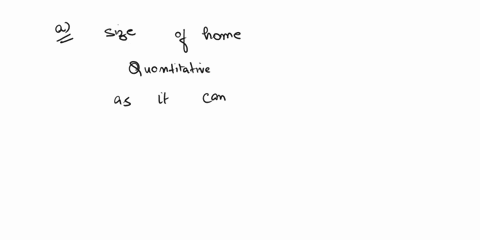 a) size of home
Quantitative
as it can